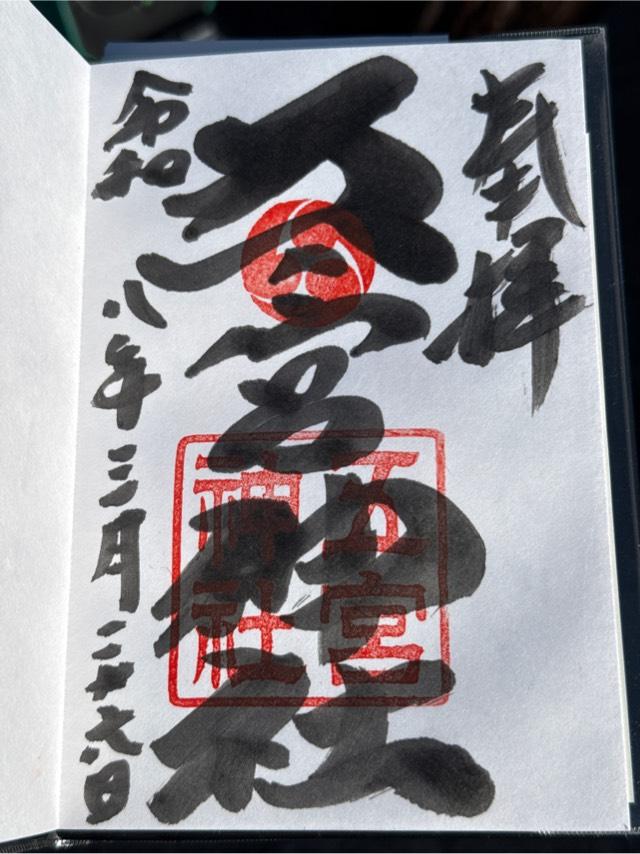 奉拝
五宮神社
五宮
神社
令和八年三月二十六日